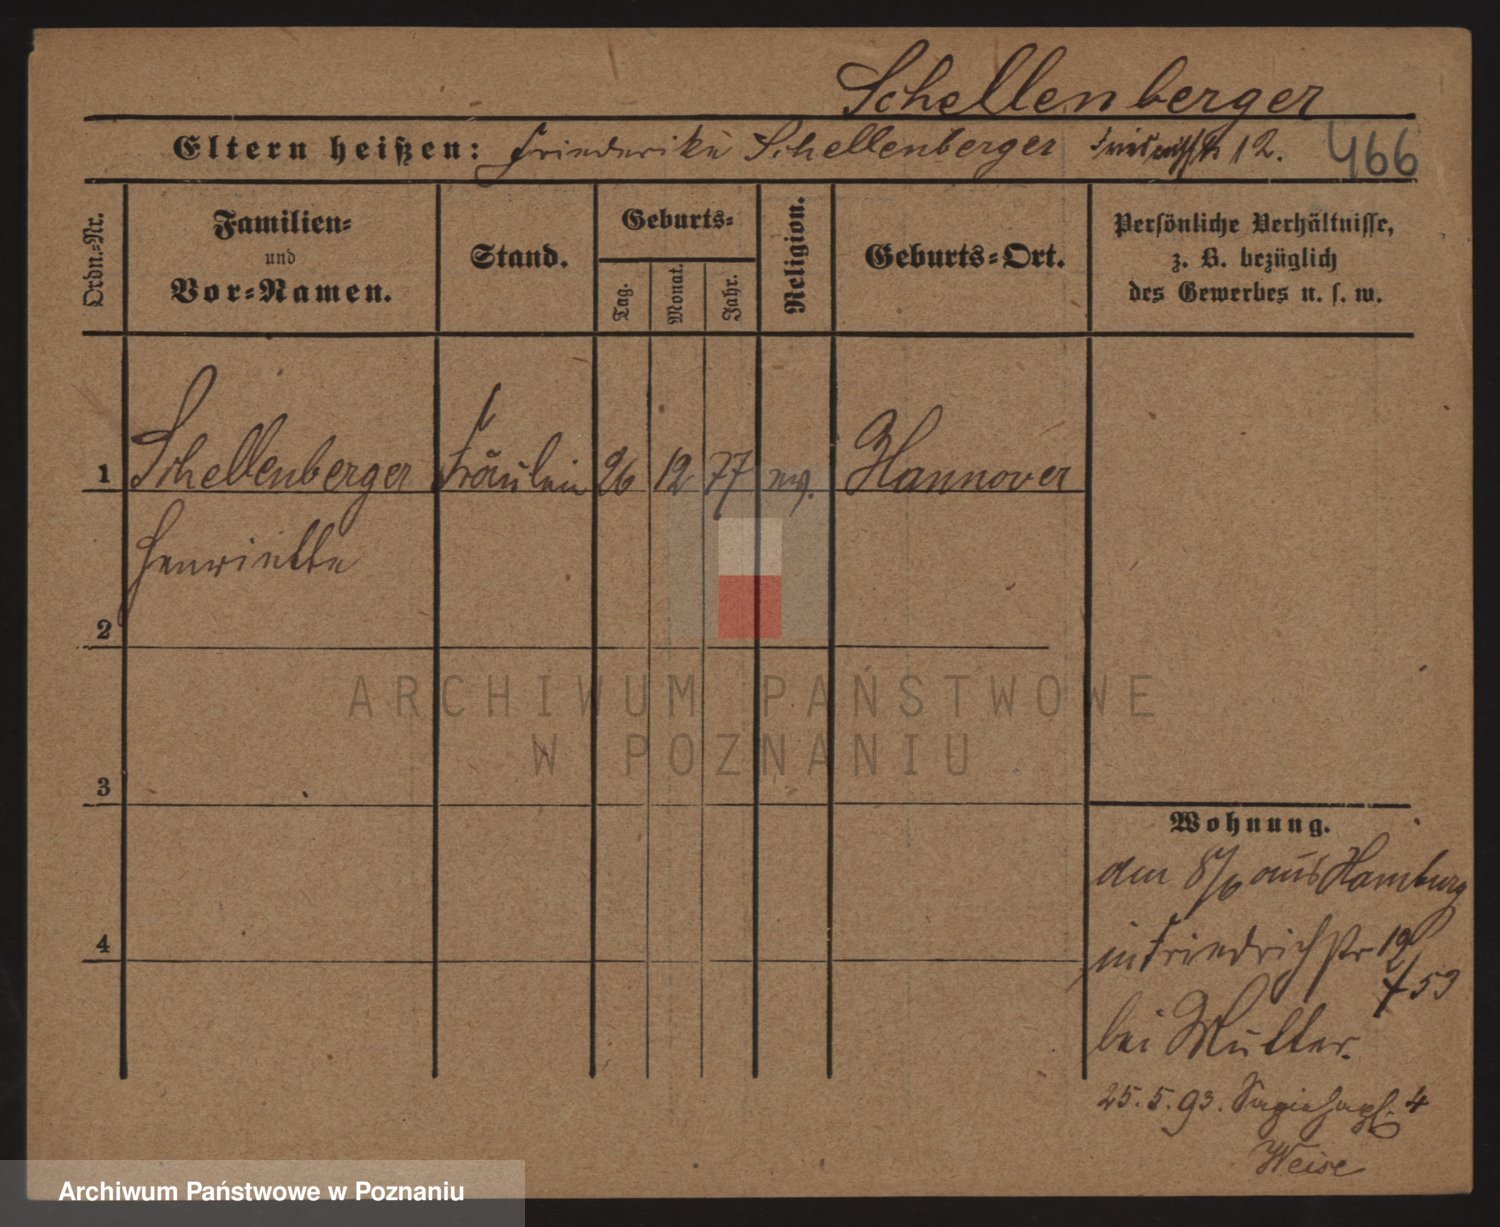 Schellenberger
Eltern heißen: Friederike Schellenberger Friedrichstr 12. 466
Ordn.-Nr.
Familien-
und
Vor-Namen.
Stand.
Geburts-
Tag.
Monat.
Jahr.
Religion.
Geburts-Ort.
Persönliche Verhältnisse,
z. B. bezüglich
des Gewerbes u. s. w.
1 Schellenberger Fräulein 26 12 77 ev. Hannover
Henriette
2
3
4
Wohnung.
am 8/6 aus Hamburg
in Friedrichstr 12
f 59
bei Mutter.
25.5.93. 4
Weise
ARCHIWUM PAŃSTWOWE
W POZNANIU
Archiwum Państwowe w Poznaniu